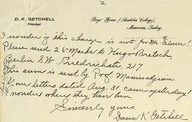 D. K. GETCHELL
Principal
Boys' Home (Anatolia College)
Marsovan, Turkey
I wonder if this charge is not for Mr. Elmer!
Please send 25 Marks to Hugo Bretsch
Berlin S.W. Friedrichstr. 217
This sum is sent by Prof Manissadjian
Your letters dated Aug. 31 came yesterday!
I wonder where they have been.
Sincerely yours,
Dana K Getchell